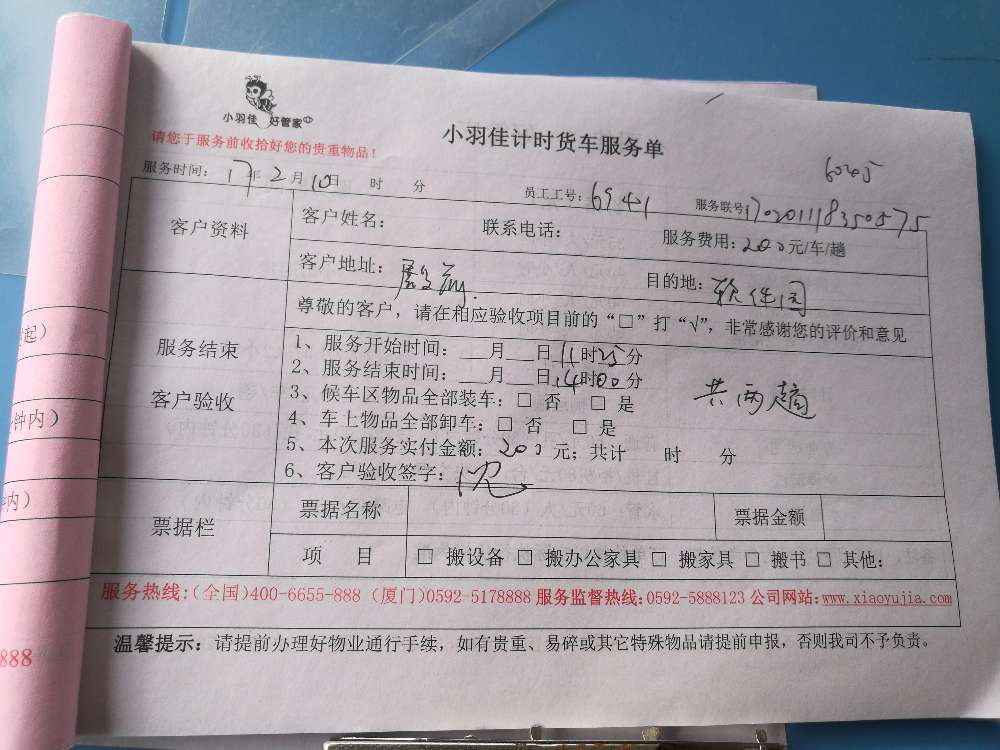 小羽佳 好管家
小羽佳计时货车服务单
请您于服务前收拾好您的贵重物品！
服务时间：17年2月10日 时 分 员工工号：6941 服务联号：
客户资料
客户姓名： 联系电话： 服务费用：200元/车/趟
客户地址： 目的地：软件园
尊敬的客户，请在相应验收项目前的“□”打“√”，非常感谢您的评价和意见
服务结束
客户验收
1、服务开始时间：___月___日11时25分
2、服务结束时间：___月___日14时00分
3、候车区物品全部装车：□ 否 □ 是
共两趟
4、车上物品全部卸车：□ 否 □ 是
5、本次服务实付金额：200元；共计 时 分
6、客户验收签字：
票据栏
票据名称 票据金额
项 目 □ 搬设备 □ 搬办公家具 □ 搬家具 □ 搬书 □ 其他：
服务热线：（全国）400-6655-888（厦门）0592-5178888 服务监督热线：0592-5888123 公司网站：www.xiaoyujia.com
温馨提示：请提前办理好物业通行手续，如有贵重、易碎或其它特殊物品请提前申报，否则我司不予负责。
起）
钟内）
内）
888